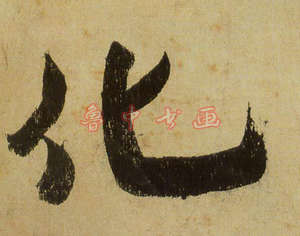 化
鲁中书画